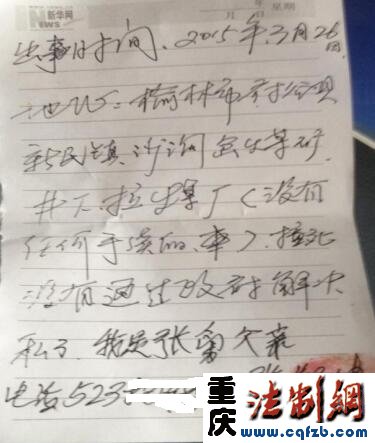 新华网
News
年 星期
月 日
出事时间、2015年3月26日
地址：榆林市府谷县
新民镇沙沟岔煤矿
井下拉煤厂（没有
任何手续的车）撞死
没有通过政府解决
私了 我是张勇父亲
电话523
重庆法制網
www.cqfzb.com